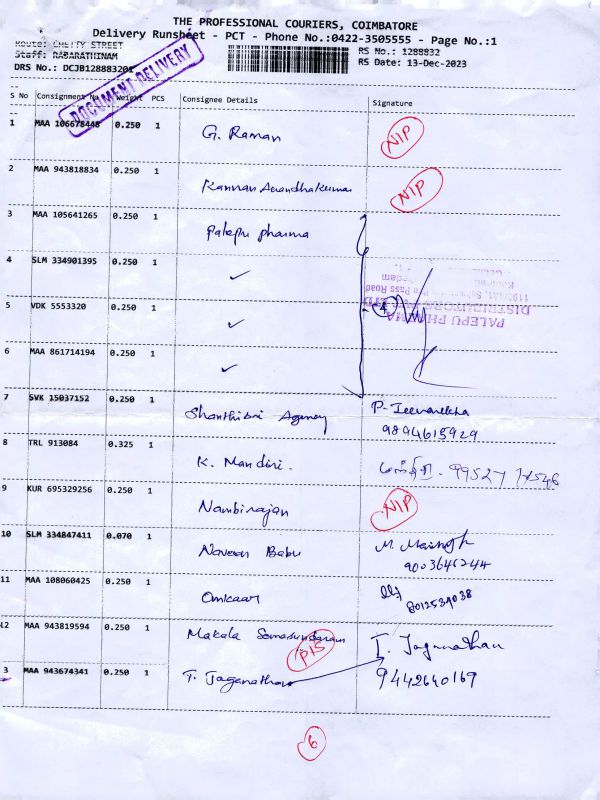 THE PROFESSIONAL COURIERS, COIMBATORE
Delivery Runsheet - PCT - Phone No.:0422-3505555 - Page No.:1
Route: CHETTY STREET
Staff: RABARATHINAM
DRS No.: DCJB128883201
RS No.: 1288832
RS Date: 13-Dec-2023
DOCUMENT DELIVERY
S No Consignment No Weight PCS Consignee Details Signature
1 MAA 106678448 0.250 1 G. Raman NIP
2 MAA 943818834 0.250 1 Kannan Anandhakumar NIP
3 MAA 105641265 0.250 1 Palepu pharma
4 SLM 334901395 0.250 1 ✓
5 VDK 5553320 0.250 1 ✓ 4
PALEPU PHARMA
DISTRIBUTORS
6 MAA 861714194 0.250 1 ✓
7 SVK 15037152 0.250 1 Shanthi Agency P. Jeevarekha
9894615929
8 TRL 913084 0.325 1 K. Mandiri.
9 KUR 695329256 0.250 1 Nambirajan NIP
10 SLM 334847411 0.070 1 Naveen Babu M.
9003646244
11 MAA 108060425 0.250 1 Omkaar
8012539038
12 MAA 943819594 0.250 1 Makala Somasundaram T. Jaganathan
3 MAA 943674341 0.250 1 T. Jaganathan 9442640169
6